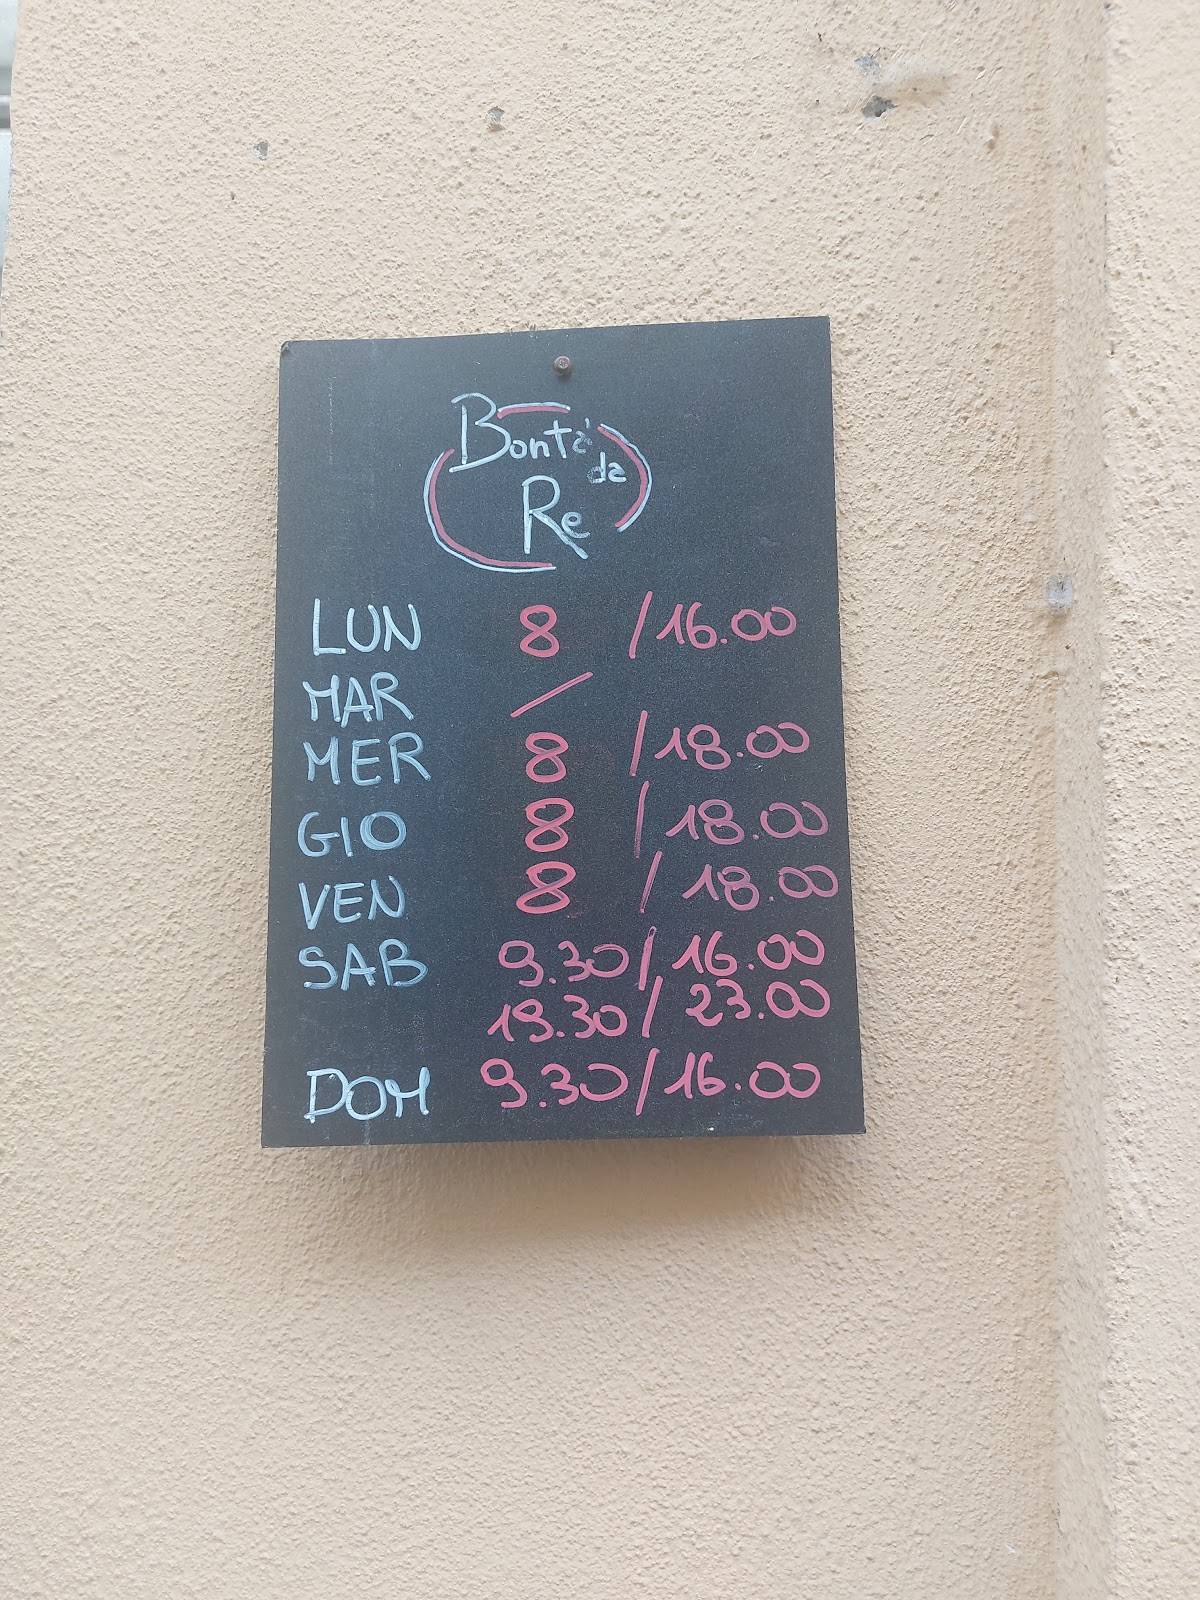 Bontà
da
Re
LUN 8 /16.00
MAR /
MER 8 /18.00
GIO 8 /18.00
VEN 8 /18.00
SAB 9.30/16.00
19.30/23.00
DOM 9.30/16.00